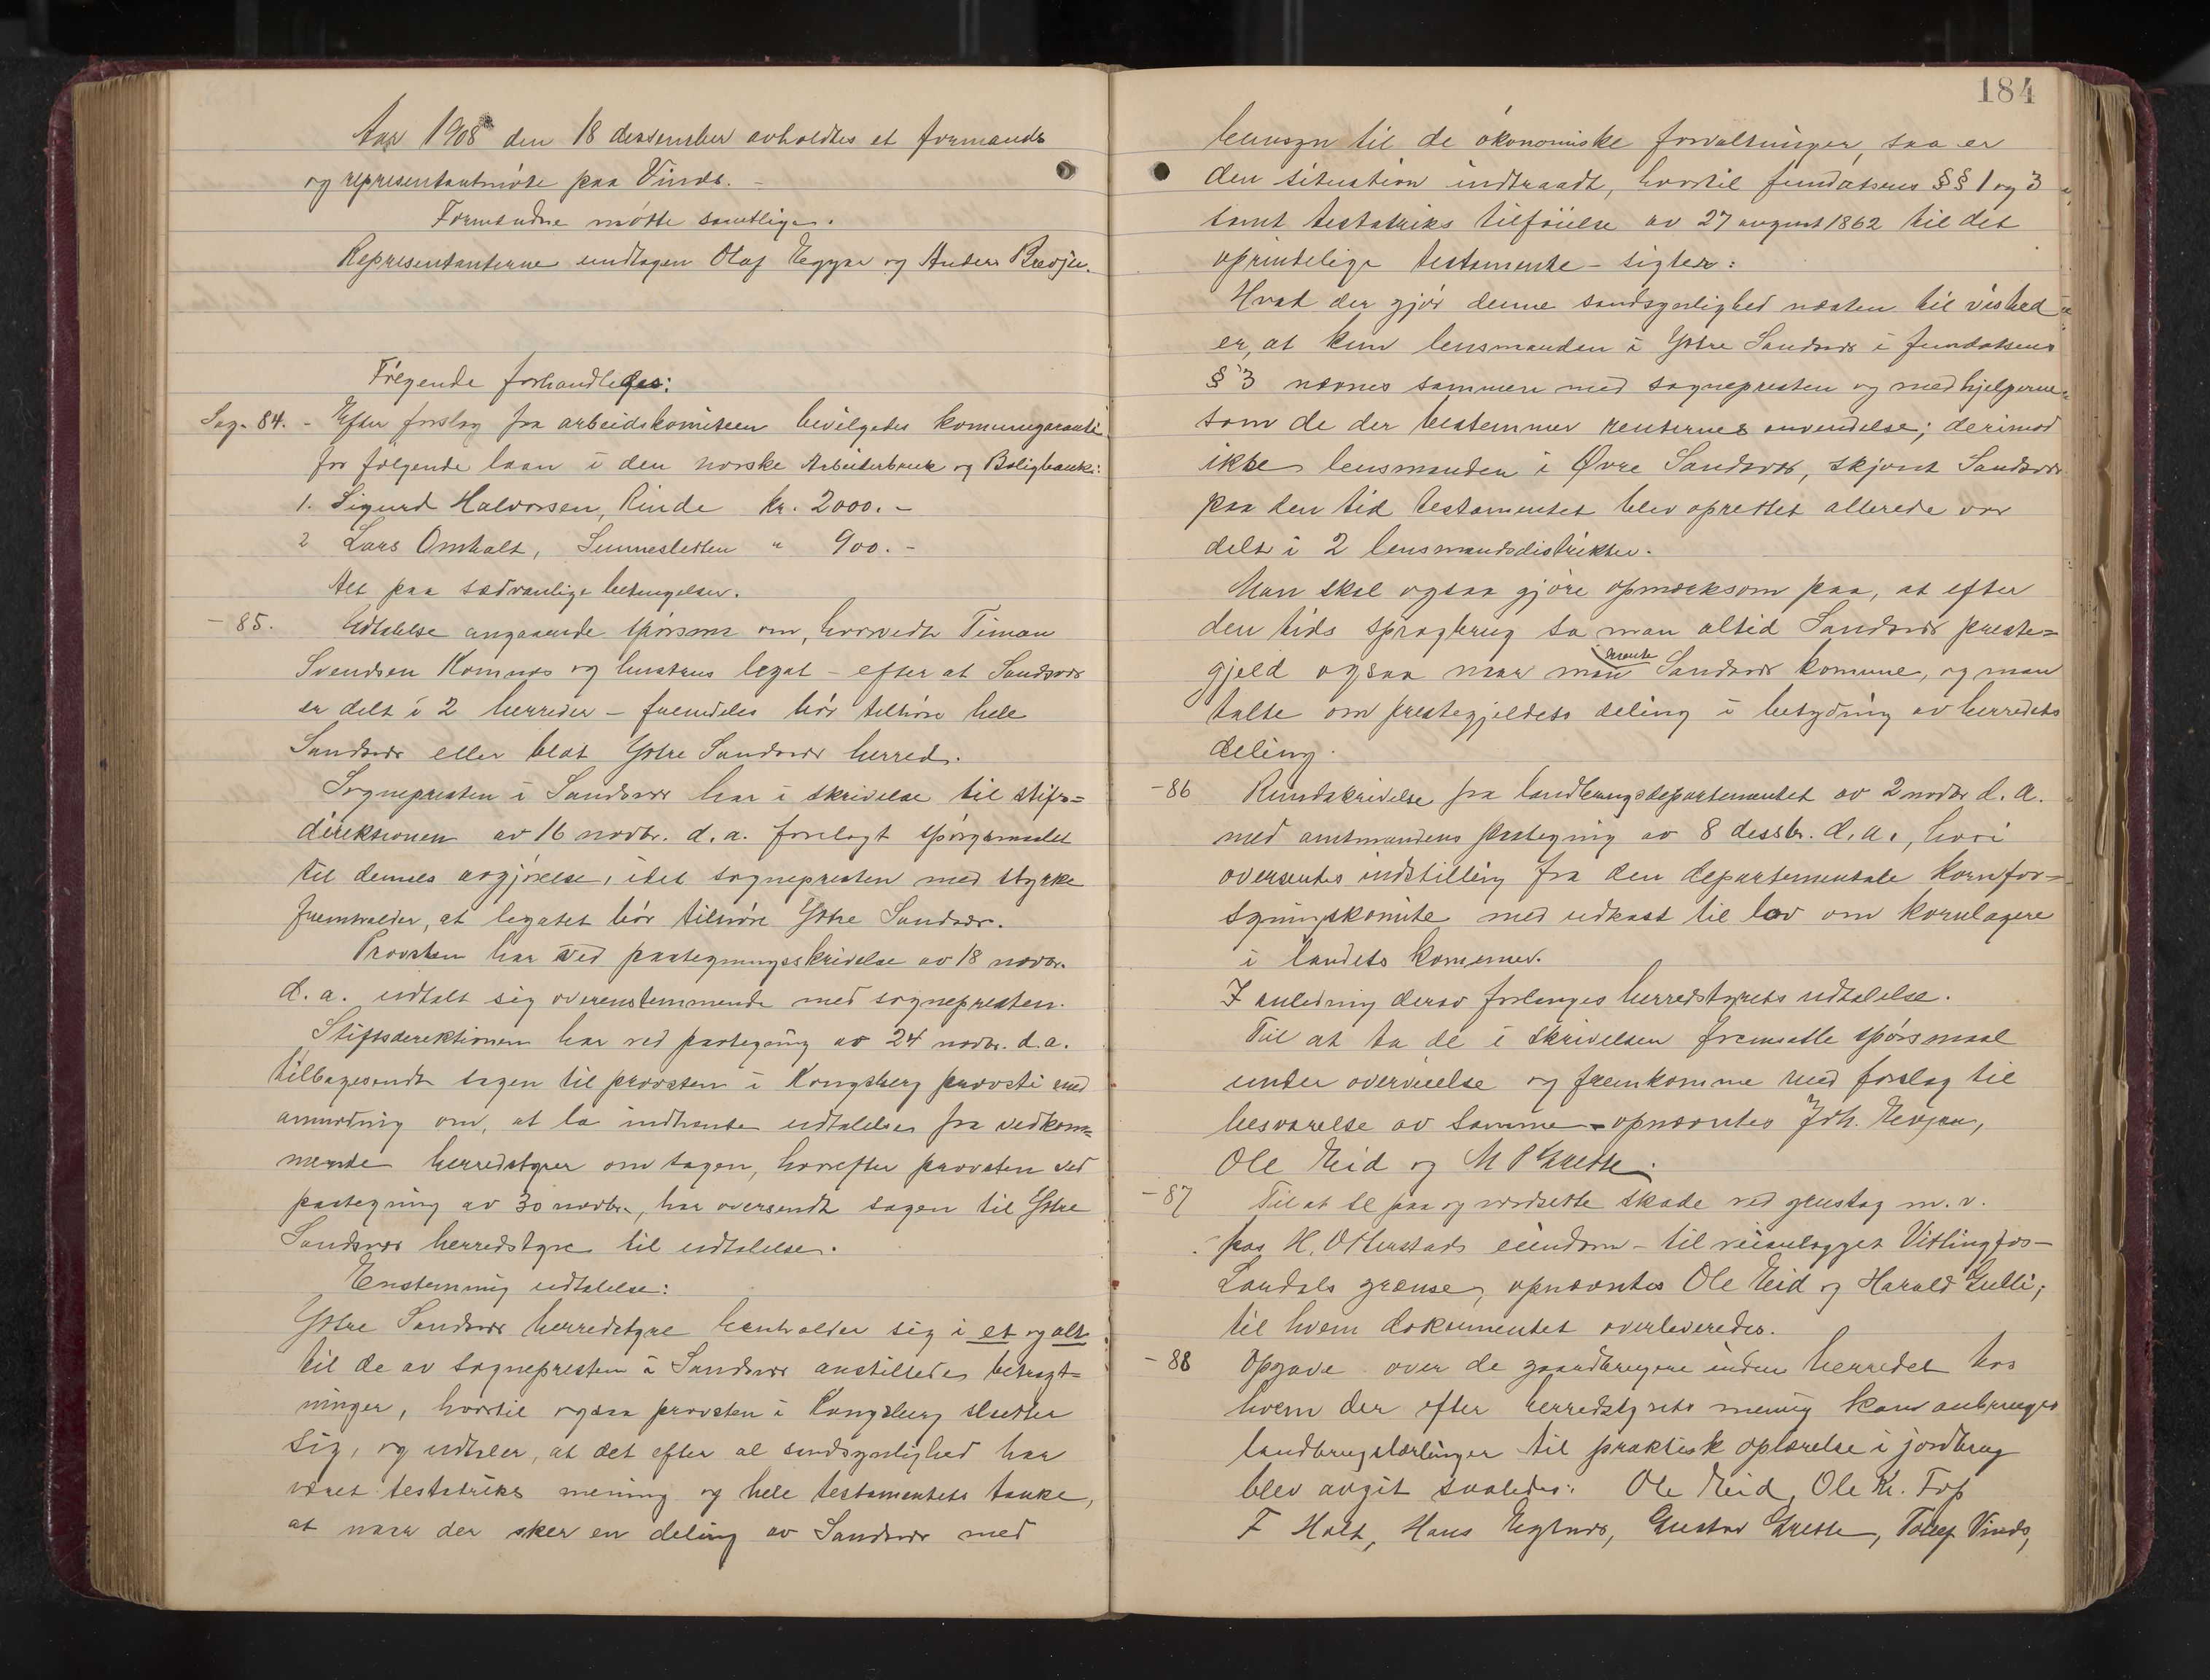 Aar 1908 den 18 dessember avholdtes et formands
og representantmöte paa Vinds. –
Formændne mötte samtlige.
Representanterne undtagen Olaf Teggse og Anders Bævje.
Fölgende forhandledes:
Sag. 84. - Efter forslag fra arbeidskomiteen bevilgedes komunegaranti
for følgende laan i den norske Arbeiderbruk og Boligbank:
1. Sigurd Halvorsen, Rinde kr. 2000. –
2 Lars Omholt, Sunnesletten " 900. –
Alt paa sædvanlige betingelser.
– 85. Udtalelse angaaende spörsmaal om, hvorvidt Timan
Svendsen Komnæs og hustrus legat – efter at Sandsvær
er delt i 2 herreder – fremdeles bör tilhöre hele
Sandsvær eller blot Ytre Sandsvær herred.
Sognepresten i Sandsvær har i skrivelse til stifs=
direktionen av 16 novbr. d. a. forelagt spörgsmaalet
til dennes avgjörelse, idet sognepresten med styrke
fremholder, at legatet bör tilhöre Ytre Sandsvær.
Provsten har ved paategningsskrivelse av 18 novbr.
d. a. udtalt sig overenstemmende med sognepresten.
Stiftsdirektionen har ved paategning av 24 novbr. d. a.
tilbagesendt sagen til provsten i Kongsberg provsti med
anmodning om, at la indhente udtalelser fra vedkom=
mende herredstyrer om sagen, hvorefter provsten ved
paategning av 30 novbr., har oversendt sagen til Ytre
Sandsvær herredstyre til udtalelse.
Enstemmig udtalelse:
Ytre Sandsvær herredstyre henholder sig i et og alt
til de av sognepresten i Sandsvær anstillede betragt=
ninger, hvortil ogsaa provsten i Kongsberg slutter
sig, og udtaler, at det efter al sandsynlighed har
været testatriks mening og hele testamentets tanke,
at naar der sker en deling av Sandsvær med
184
hensyn til de ökonomiske forvaltninger, saa er
den situation indtraadt, hvortil fundatsens §§ 1 og 3
samt testatriks tilföielse av 27 august 1862 til det
oprindelige testamente – sigter:
Hvad der gjör denne sandsynlighed næsten til vished
er, at kun lensmanden i Ytre Sandsvær i fundatsens
§ 3 nævnes sammen med sognepresten og medhjelperne
som de der bestemmer renternes anvendelse; derimod
ikke lensmanden i Øvre Sandsvær, skjönt Sandsvær
paa den tid testamentet blev oprettet allerede var
delt i 2 lensmandsdistrikter.
Man skal ogsaa gjöre opmerksom paa, at efter
den tids sprogbrug sa man altid Sandsvær preste=
gjeld ogsaa naar man mente Sandsvær komune, og man
talte om prestegjeldets deling i betydning av herredets
deling.
– 86 Rundskrivelse fra landbrugsdepartementet av 2 novbr d. a.
med amtmandens paategning av 8 dessbr. d. a., hvori
oversendes indstilling fra den departementale kornfor=
syningskomite med udkast til lov om kornlagere
i landets komuner.
I anledning derav forlanges herredstyrets udtalelse.
Til at ta de i skrivelsen fremsatte spörsmaal
under overveielse og fremkomme med forslag til
besvarelse av samme – opnævntes Joh. Tevjen,
Ole Eid og M P Grette.
– 87 Til at se paa og værdsette skade ved grustag m. v.
paa H. Otterstads eiendom – til veianlægget Vitlingfos –
Landals grænse, opnævntes Ole Eid og Harald Gulli;
til hvem dokumentet overleveredes.
– 88 Opgave over de gaardbrugere inden herredet hos
hvem der efter herredstyrets mening kan anbringes
landbrugslærlinger til praktisk oplærelse i jordbrug
blev avgit saaledes: Ole Eid, Ole K. Fop
F Holt, Hans Teglnæs, Gustav Grette, Tollef Vinds,